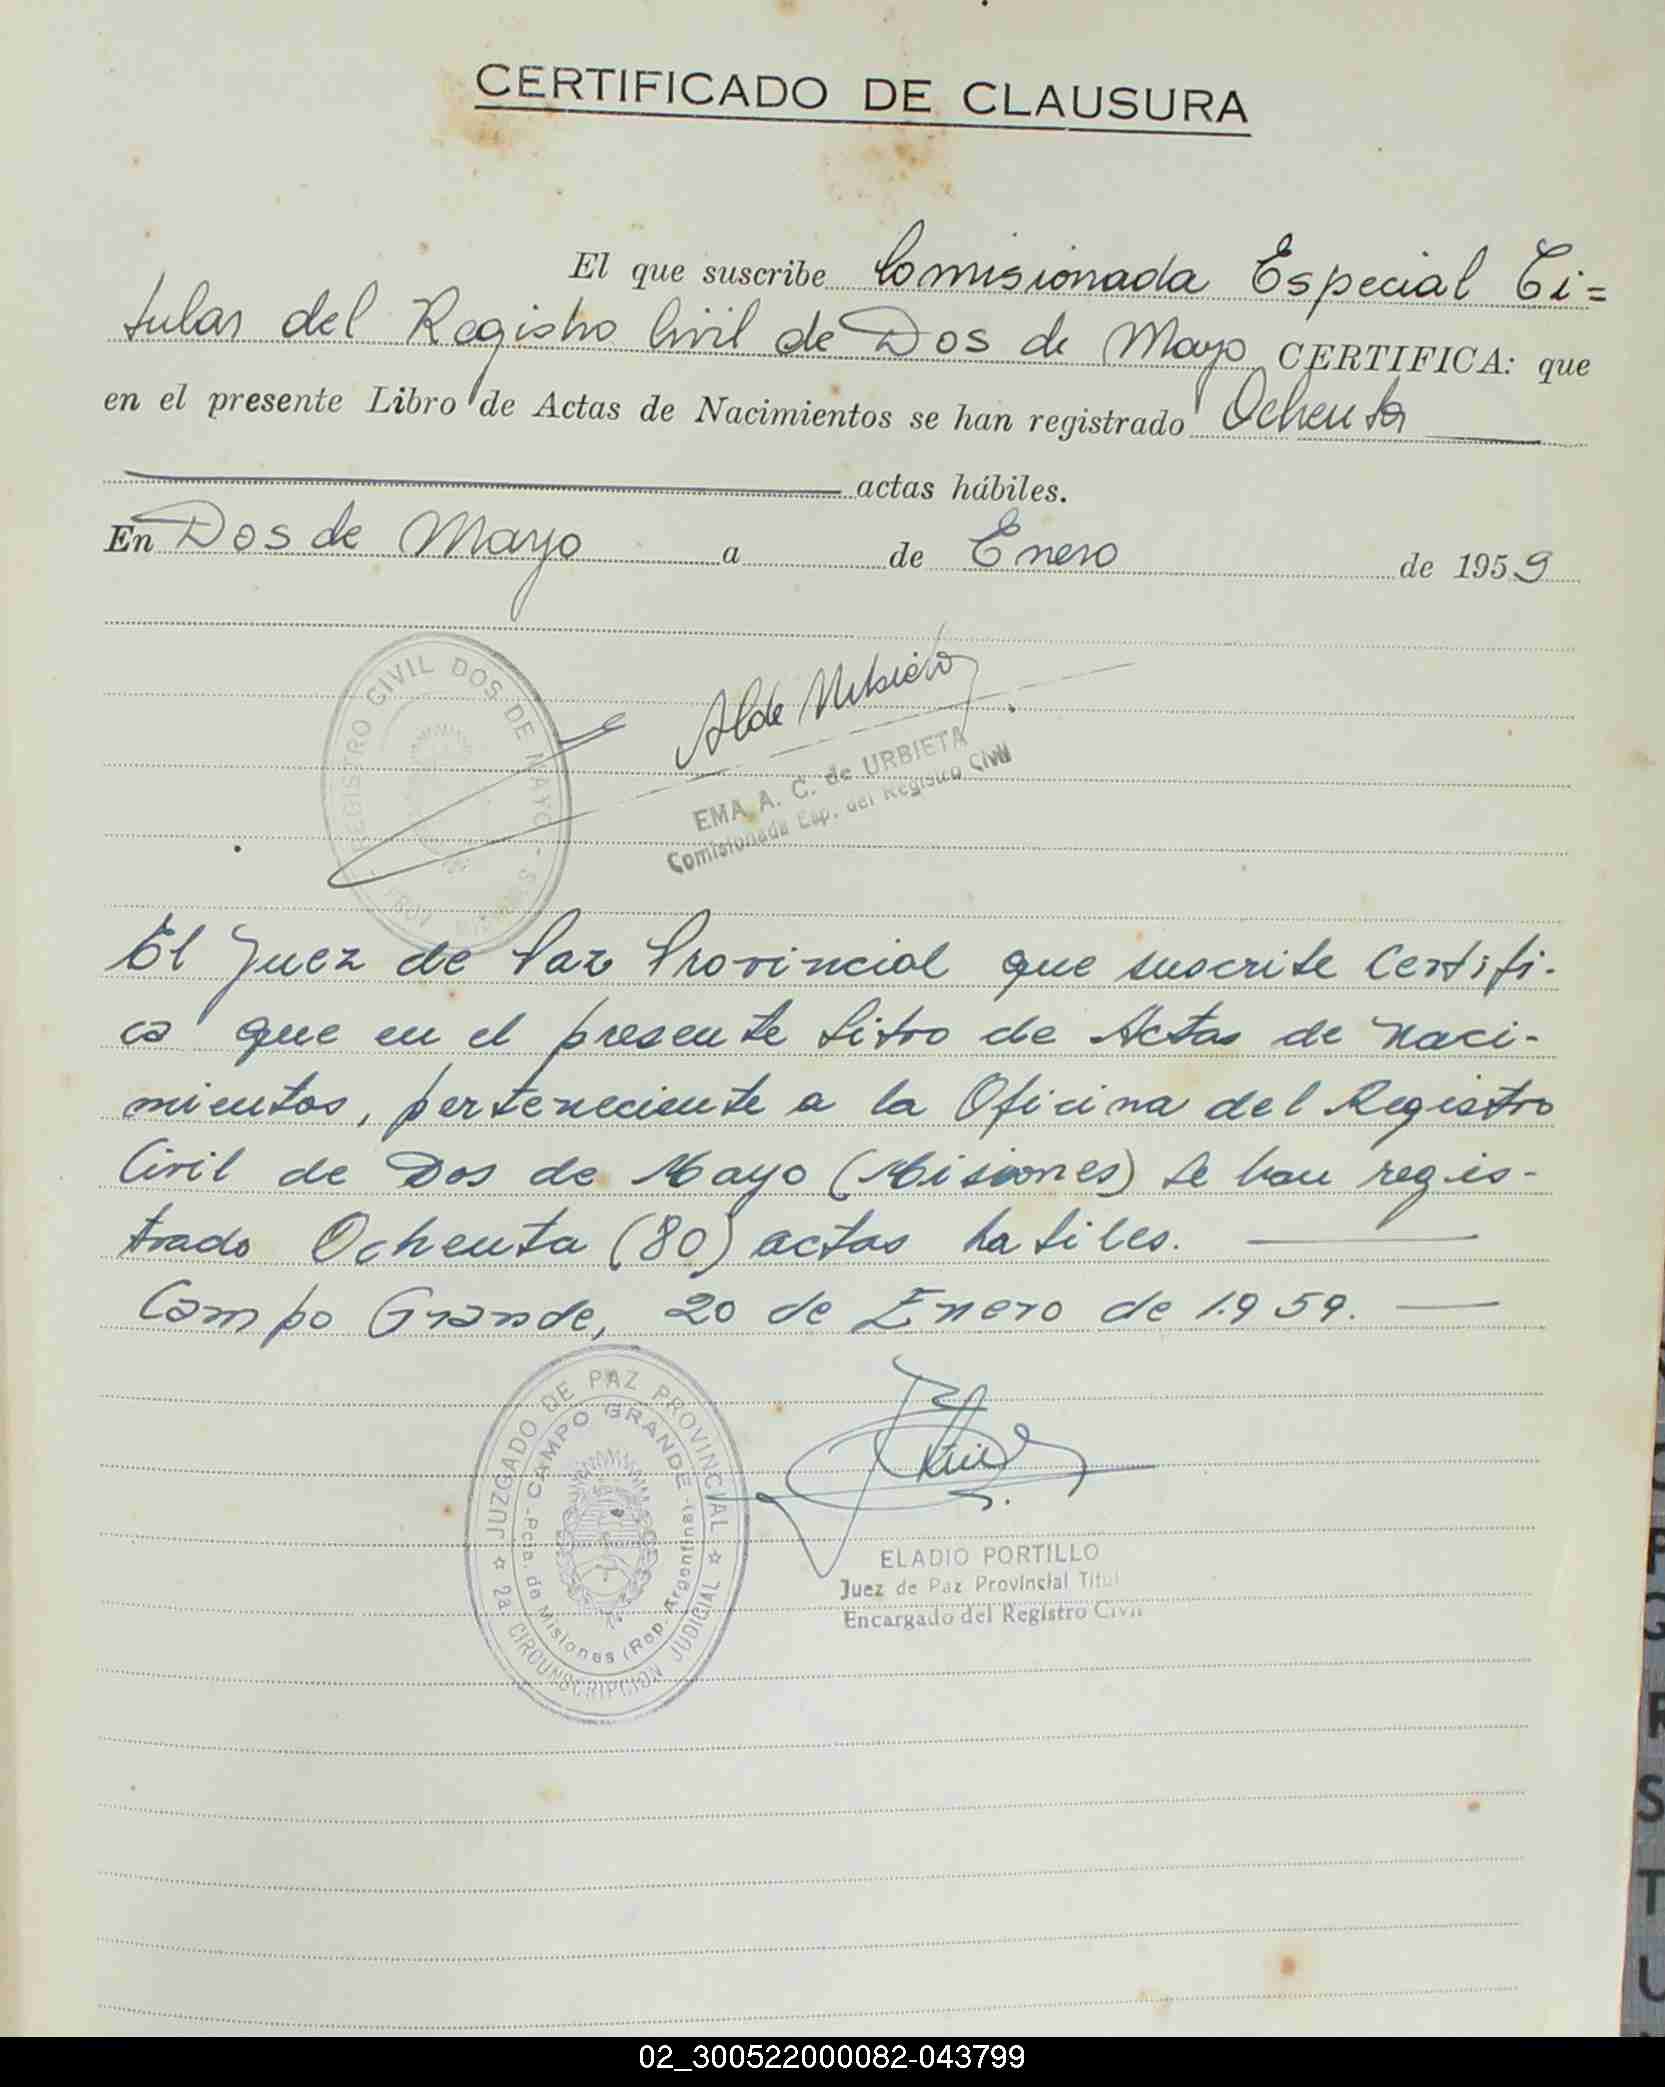 CERTIFICADO DE CLAUSURA
El que suscribe Comisionada Especial Ti=
tular del Registro Civil de Dos de Mayo CERTIFICA: que
en el presente Libro de Actas de Nacimientos se han registrado Ochenta
actas hábiles.
En Dos de Mayo a de Enero de 1959
REGISTRO CIVIL DOS DE MAYO
EMA A. C. de URBIETA
Comisionada Esp. del Registro Civil
El Juez de Paz Provincial que suscribe Certifi-
ca que en el presente Libro de Actas de Naci-
mientos, perteneciente a la Oficina del Registro
Civil de Dos de Mayo (Misiones) se han regis-
trado Ochenta (80) actas habiles.
Campo Grande, 20 de Enero de 1.959.
JUZGADO DE PAZ PROVINCIAL
CAMPO GRANDE
Pcia. de Misiones (Rep. Argentina)
2a. CIRCUNSCRIPCION JUDICIAL
ELADIO PORTILLO
Juez de Paz Provincial Titul
Encargado del Registro Civil
R
S
T
U
02_300522000082-043799